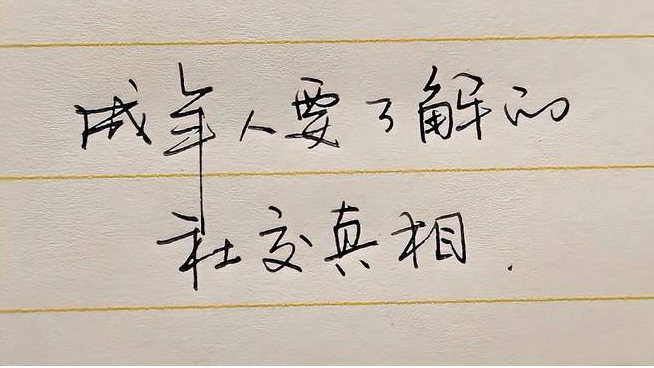 成年人要了解的
社交真相.